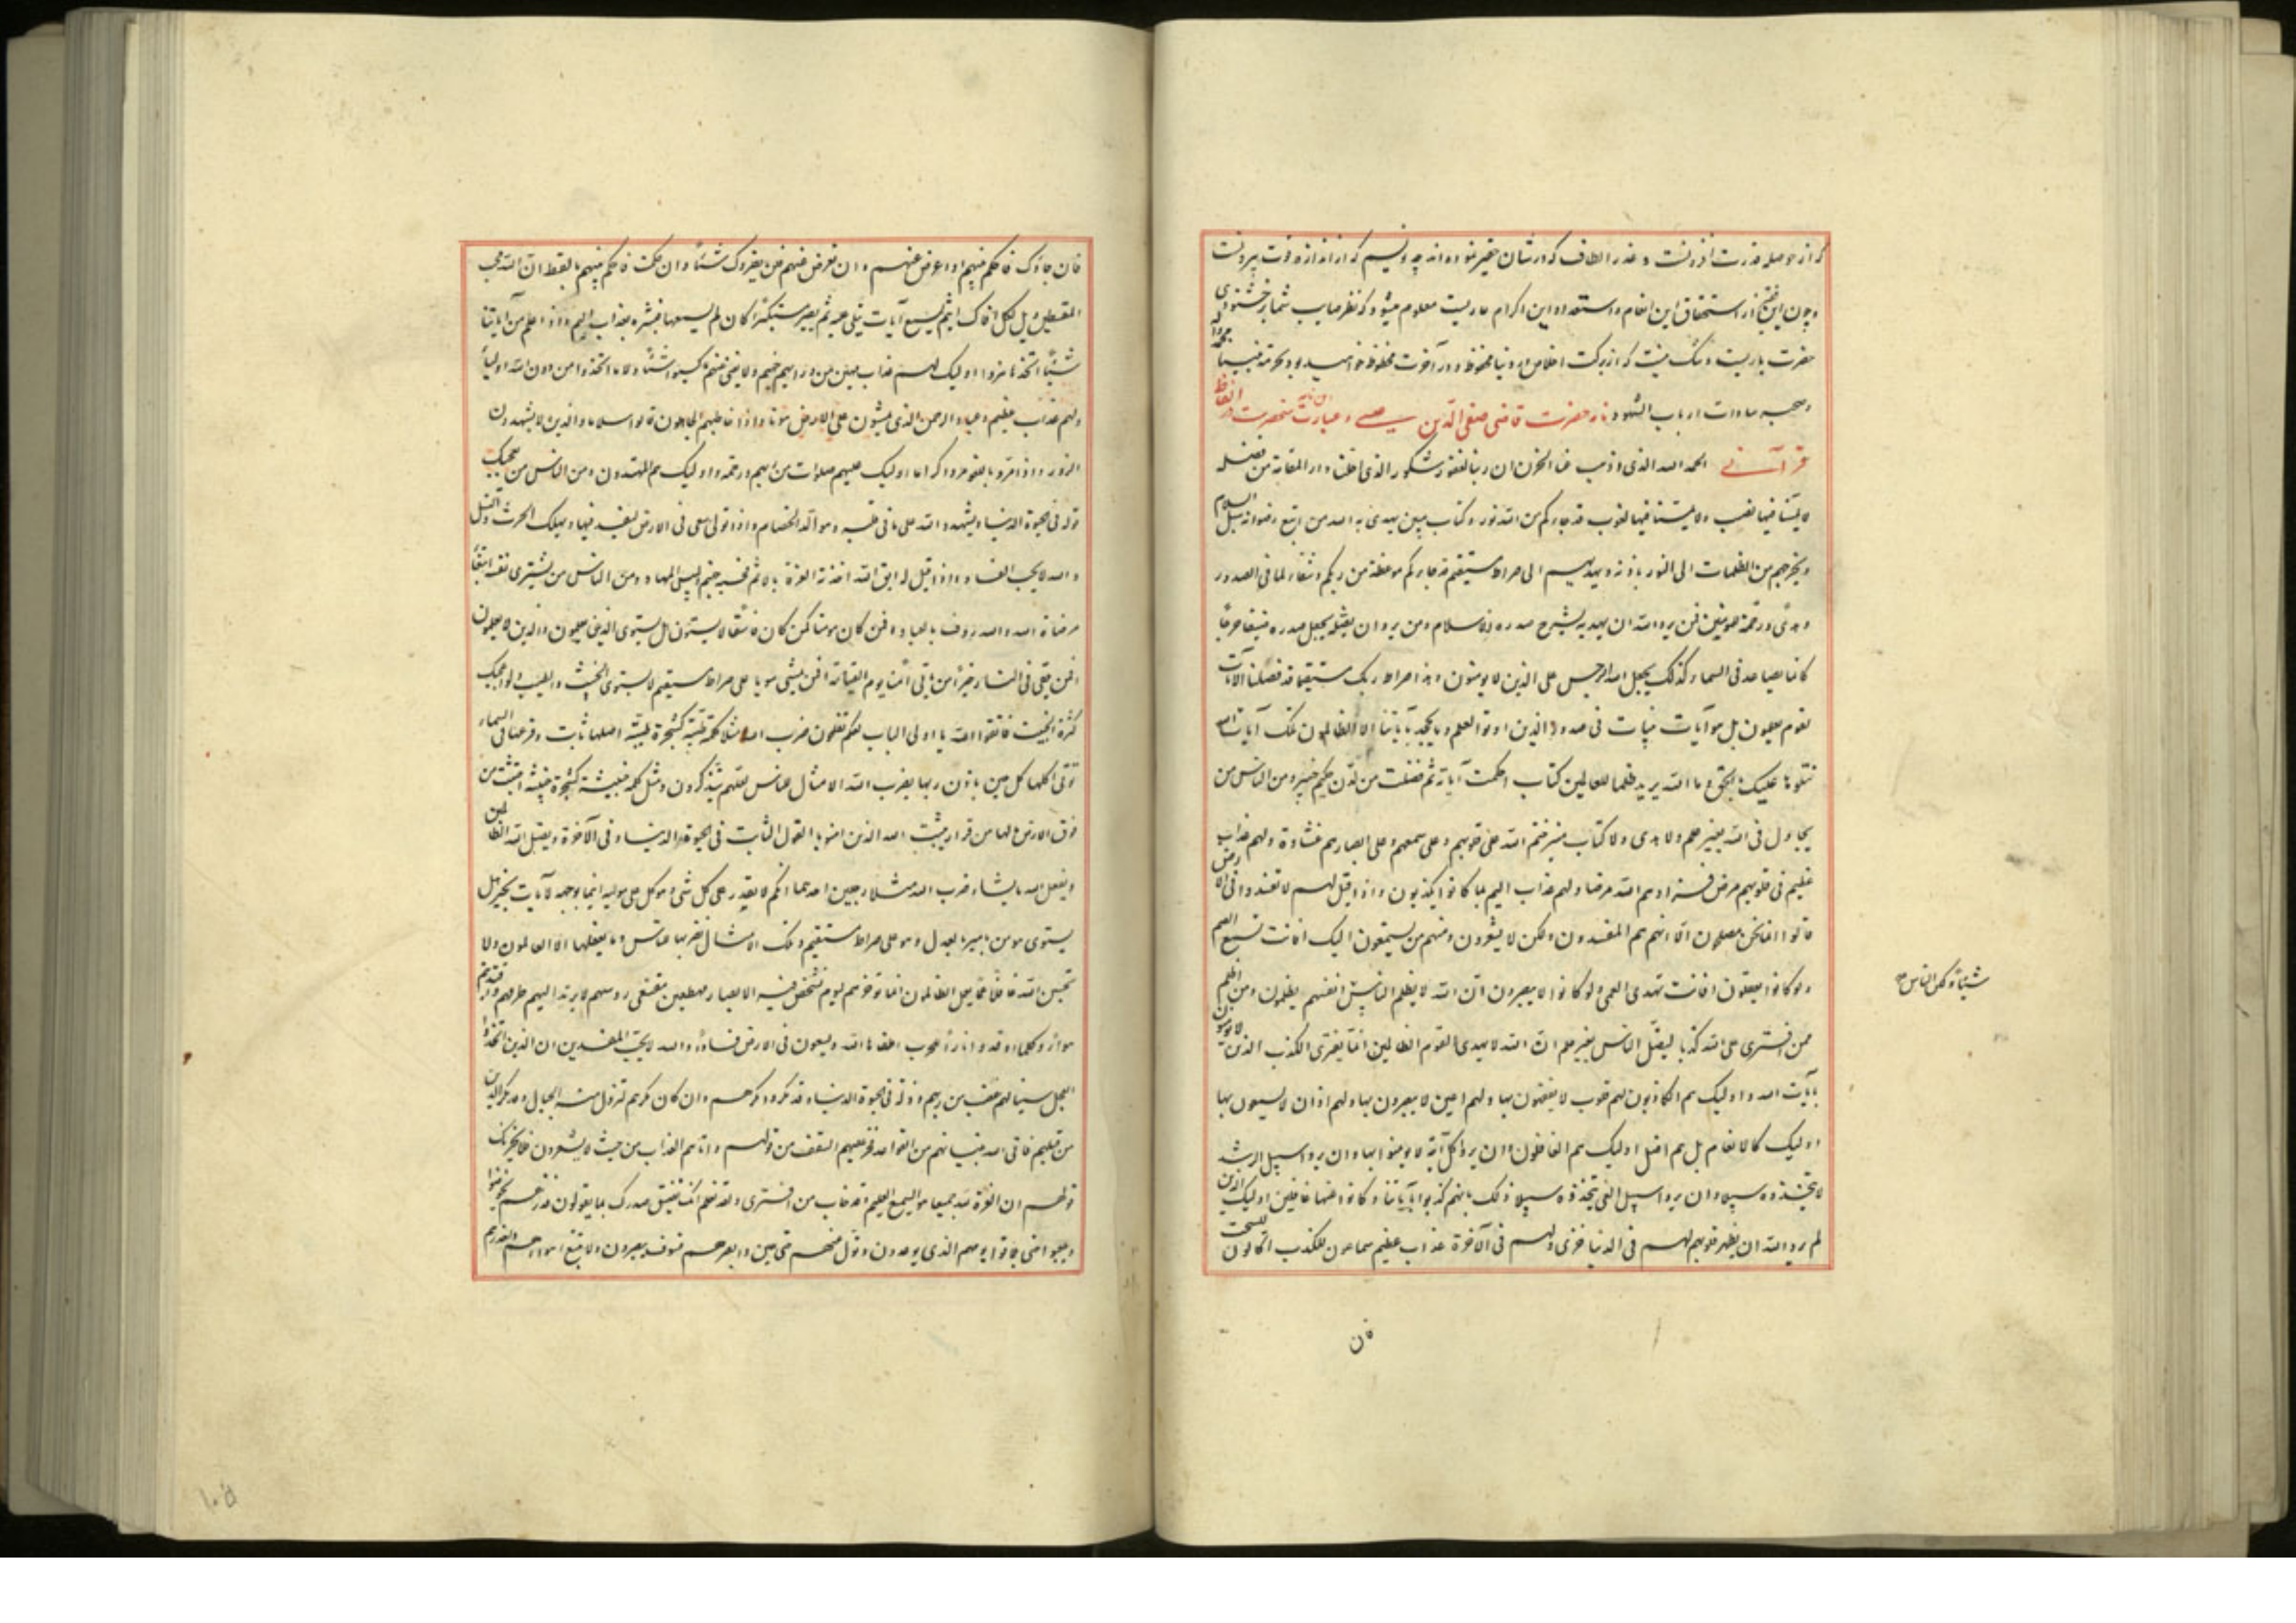 که از حوصله قدرت افزونست و عذر الطاف که در شأن حقیر نموده‌اند چه نویسم که از اندازه قوت بیرونست
و چون این فقیر از استحقاق این انعام و استعداد این اکرام عاریست معلوم میشود که نظر صایب شما بر خشنودی
حضرت باریست و شک نیست که از برکت اخلاص در دنیا محفوظ و در آخرت محظوظ خواهید بود بحرمة نبینا محمد و آله
و صحبه سادات ارباب الشهود نامه حضرت قاضی صفی الدین عیسی و عبارت این نامه منحصرست در الفاظ
قرآنی الحمد لله الذی اذهب عنا الحزن ان ربنا لغفور شکور الذی احلنا دار المقامة من فضله
لا یمسنا فیها نصب ولا یمسنا فیها لغوب قد جاءکم من الله نور وکتاب مبین یهدی به الله من اتبع رضوانه سبل السلام
ویخرجهم من الظلمات الی النور باذنه ویهدیهم الی صراط مستقیم قد جاءتکم موعظة من ربکم وشفاء لما فی الصدور
وهدًی ورحمة للمؤمنین فمن یرد الله ان یهدیه یشرح صدره للاسلام ومن یرد ان یضله یجعل صدره ضیقا حرجًا
کانما یصاعد فی السماء کذلک یجعل الله الرجس علی الذین لا یومنون وهذا صراط ربک مستقیما قد فصلنا الآیات
لقوم یعلمون بل هو آیات بینات فی صدور الذین اوتوا العلم وما یجحد بآیاتنا الا الظالمون تلک آیات الله
نتلوها علیک بالحق وما الله یرید ظلما للعالمین کتاب احکمت آیاته ثم فصلت من لدن حکیم خبیر ومن الناس من
یجادل فی الله بغیر علم ولا هدی ولا کتاب منیر ختم الله علی قلوبهم وعلی سمعهم وعلی ابصارهم غشاوة ولهم عذاب
عظیم فی قلوبهم مرض فزادهم الله مرضا ولهم عذاب الیم بما کانوا یکذبون واذا قیل لهم لا تفسدوا فی الارض
قالوا انما نحن مصلحون الا انهم هم المفسدون ولکن لا یشعرون ومنهم من یستمعون الیک افانت تسمع الصم
ولو کانوا لا یعقلون افانت تهدی العمی ولو کانوا لا یبصرون ان الله لا یظلم الناس انفسهم یظلمون ومن اظلم
شیئًا ولکن الناس صح
ممن افتری علی الله کذبا لیضل الناس بغیر علم ان الله لا یهدی القوم الظالمین انما یفتری الکذب الذین لا یومنون
بآیات الله واولیک هم الکاذبون لهم قلوب لا یفقهون بها ولهم اعین لا یبصرون بها ولهم اذان لا یسمعون بها
اولیک کالانعام بل هم اضل اولیک هم الغافلون وان یروا کل آیة لا یومنوا بها وان یروا سبیل الرشد
لا یتخذوه سبیلا وان یروا سبیل الغی یتخذوه سبیلا ذلک بانهم کذبوا بآیاتنا وکانوا عنها غافلین اولیک الذین
لم یرد الله ان یطهر قلوبهم لهم فی الدنیا خزی ولهم فی الآخرة عذاب عظیم سماعون للکذب اکالون للسحت
فان
فان جاؤک فاحکم بینهم او اعرض عنهم وان تعرض عنهم فلن یضروک شیئًا وان حکمت فاحکم بینهم بالقسط ان الله یحب
المقسطین ویل لکل افاک اثیم یسمع آیات تتلی علیه ثم یصر مستکبرًا کان لم یسمعها فبشره بعذاب الیم واذا علم من آیاتنا
شیئًا اتخذها هزوا اولیک لهم عذاب مهین من ورائهم جهنم ولا یغنی عنهم ما کسبوا شیئًا ولا ما اتخذوا من دون الله اولیاء
ولهم عذاب عظیم وعباد الرحمن الذین یمشون علی الارض هونا واذا خاطبهم الجاهلون قالوا سلاما والذین لا یشهدون
الزور واذا مروا باللغو مروا کراما اولیک علیهم صلوات من ربهم ورحمة واولیک هم المهتدون ومن الناس من یعجبک
قوله فی الحیوة الدنیا ویشهد الله علی ما فی قلبه وهو الد الخصام واذا تولی سعی فی الارض لیفسد فیها ویهلک الحرث والنسل
والله لا یحب الفساد واذا قیل له اتق الله اخذته العزة بالاثم فحسبه جهنم ولبیس المهاد ومن الناس من یشتری نفسه ابتغاء
مرضاة الله والله رؤف بالعباد افمن کان مومنا کمن کان فاسقا لا یستون هل یستوی الذین یعلمون والذین لا یعلمون
افمن یلقی فی النار خیر أم من یأتی آمنا یوم القیامة افمن یمشی سویا علی صراط مستقیم لا یستوی الخبیث والطیب ولو اعجبک
کثرة الخبیث فاتقوا الله یا اولی الالباب لعلکم تفلحون ضرب الله مثلا کلمة طیبة کشجرة طیبة اصلها ثابت وفرعها فی السماء
تؤتی اکلها کل حین باذن ربها یضرب الله الامثال للناس لعلهم یتذکرون ومثل کلمة خبیثة کشجرة خبیثة اجتثت من
فوق الارض ما لها من قرار یثبت الله الذین امنوا بالقول الثابت فی الحیوة الدنیا وفی الآخرة ویضل الله الظالمین
ویفعل الله ما یشاء ضرب الله مثلا رجلین احدهما ابکم لا یقدر علی کل شیء وهو کل علی مولیه اینما یوجهه لا یأت بخیر هل
یستوی هو ومن یامر بالعدل وهو علی صراط مستقیم وتلک الامثال نضربها للناس وما یعقلها الا العالمون ولا
تحسبن الله غافلًا عما یعمل الظالمون انما یؤخرهم لیوم تشخص فیه الابصار مهطعین مقنعی رؤسهم لا یرتد الیهم طرفهم وافئدتهم
هواء وکلما اوقدوا نارًا للحرب اطفاها الله ویسعون فی الارض فسادًا والله لا یحب المفسدین ان الذین اتخذوا
العجل سینالهم غضب من ربهم وذلة فی الحیوة الدنیا وقد مکروا مکرهم وان کان مکرهم لتزول منه الجبال وقد مکر الذین
من قبلهم فاتی الله بنیانهم من القواعد فخر علیهم السقف من فوقهم واتاهم العذاب من حیث لا یشعرون فلا یحزنک
قولهم ان العزة لله جمیعا هو السمیع العلیم وقد خاب من افتری ولقد نعلم انک یضیق صدرک بما یقولون فذرهم یخوضوا
ویلعبوا حتی یلاقوا یومهم الذی یوعدون وتول عنهم حتی حین وابصرهم فسوف یبصرون ولا تتبع اهواءهم واحذرهم
١٠٥